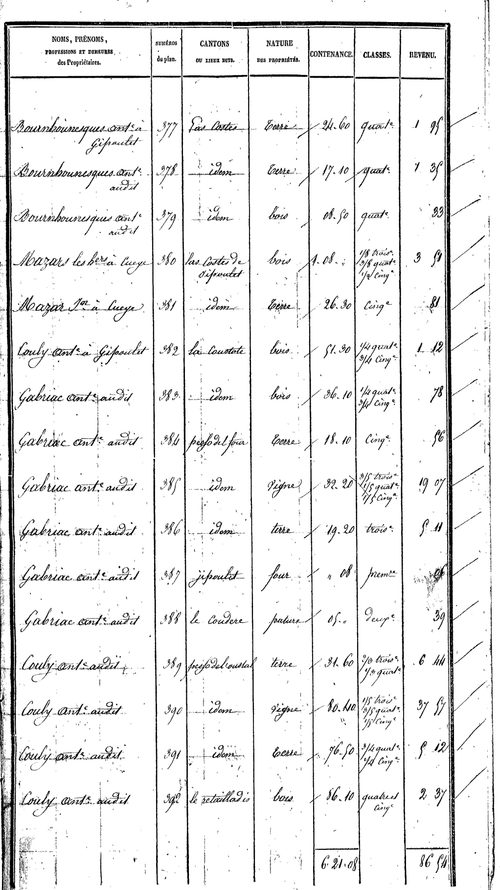 NOMS, PRÉNOMS, PROFESSIONS ET DEMEURES des Propriétaires. NUMÉROS du plan. CANTONS OU LIEUX DITS. NATURE DES PROPRIÉTÉS. CONTENANCE. CLASSES. REVENU.
Bournhounesques ant.e à Gipoulet 377 Las Costes Terre 24.60 quat.e 1 95
Bournhounesques ant.e audit 378 idem Terre 17.10 quat.e 1 35
Bournhounesques ant.e audit 379 idem bois 08.50 quat.e 33
Mazars les h.ers à Cueye 380 las Costes de Gipoulet bois 1.08 1/8 trois.e 3/8 quat.e 1/2 cinq.e 3 51
Mazar à Cueye 381 idem Terre 26.30 Cinq.e 81
Couly ant.e à Gipoulet 382 la Coustate bois 51.30 1/4 quat.e 3/4 cinq.e 1 12
Gabriac ant.e audit 383 idem bois 36.10 1/4 quat.e 3/4 cinq.e 78
Gabriac ant.e audit 384 Terre 18.10 Cinq.e 56
Gabriac ant.e audit 385 idem Vigne 32.20 3/5 trois.e 1/5 quat.e 1/5 cinq.e 19 07
Gabriac ant.e audit 386 idem terre 19.20 trois.e 5 11
Gabriac ant.e audit 387 jipoulet four " 08 prem.re 06
Gabriac ant.e audit 388 le Coudere pature 05 deux.e 39
Couly ant.e audit 389 terre 31.60 2/3 trois.e 1/3 quat.e 6 44
Couly ant.e audit 390 idem Vigne 80.40 1/5 trois.e 3/5 quat.e 1/5 cinq.e 37 57
Couly ant.e audit 391 idem Terre 76.50 3/4 quat.e 1/4 cinq.e 5 12
Couly ant.e audit 392 le retailladis bois 86.10 quatre et cinq.e 2 37
6.21.08 86 54